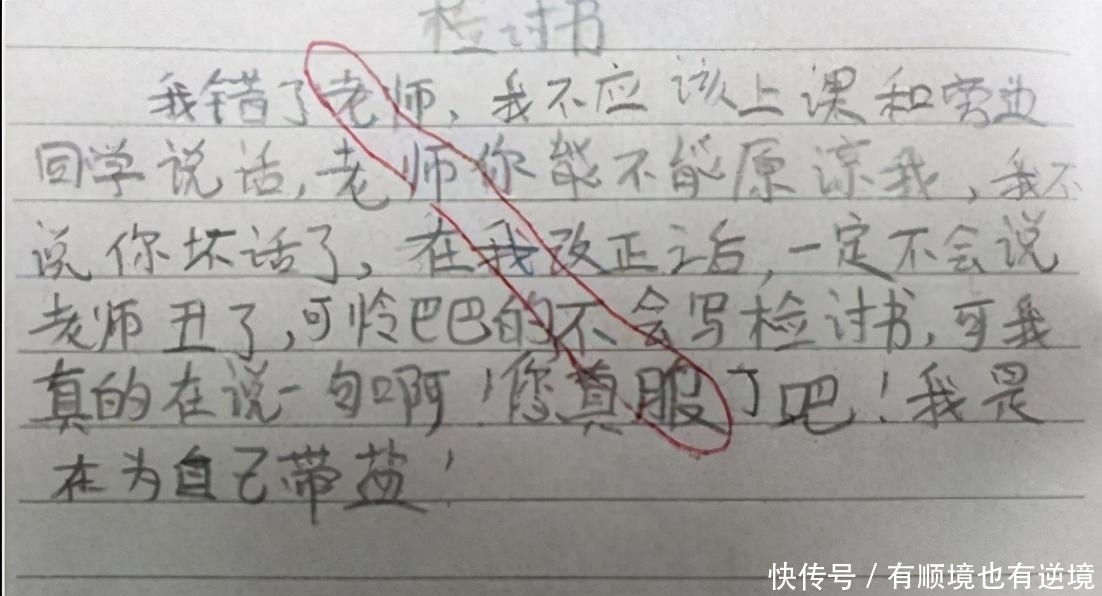 检讨书
我错了老师，我不应该上课和旁边
同学说话，老师你能不能原谅我，我不
说你坏话了，在我改正之后，一定不会说
老师丑了，可怜巴巴的不会写检讨书，可我
真的在说一句啊！您真服了吧！我是
在为自己带盐！
快传号 / 有顺境也有逆境